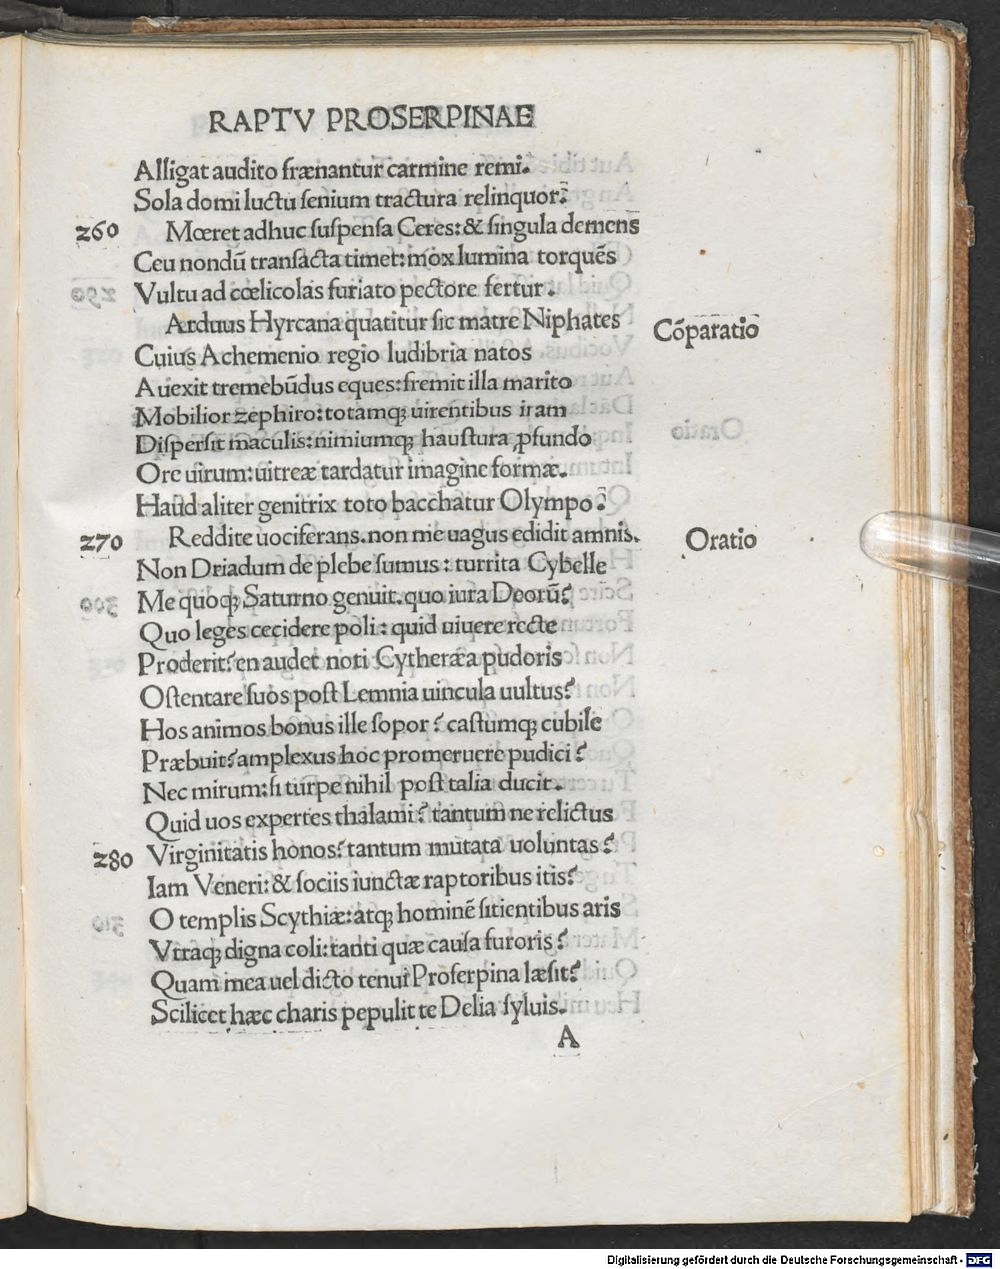 RAPTV PROSERPINAE
Alligat audito frænantur carmine remi.
Sola domi luctu senium tractura relinquor?
260 Mœret adhuc suspensa Ceres: & singula demens
Ceu nondū transacta timet: mox lumina torquēs
Vultu ad cœlicolas furiato pectore fertur.
Arduus Hyrcana quatitur sic matre Niphates Cōparatio
Cuius Achemenio regio ludibria natos
Auexit tremebūdus eques: fremit illa marito
Mobilior zephiro: totamq; uirentibus iram
Dispersit maculis: nimiumq; haustura ꝓfundo
Ore uirum: uitreæ tardatur imagine formæ.
Haud aliter genitrix toto bacchatur Olympo?
270 Reddite uociferans. non me uagus edidit amnis. Oratio
Non Driadum de plebe sumus: turrita Cybelle
Me quoq; Saturno genuit. quo iura Deorū?
Quo leges cecidere poli: quid uiuere recte
Proderit? en audet noti Cytheræa pudoris
Ostentare suos post Lemnia uincula uultus?
Hos animos bonus ille sopor? castumq; cubile
Præbuit? amplexus hoc promeruere pudici?
Nec mirum: si turpe nihil post talia ducit.
Quid uos expertes thalami? tantum ne relictus
280 Virginitatis honos? tantum mutata uoluntas?
Iam Veneri: & sociis iunctæ raptoribus itis?
O templis Scythiæ: atq; hominē sitientibus aris
Vtraq; digna coli: tanti quæ causa furoris?
Quam mea uel dicto tenui Proserpina læsit?
Scilicet hæc charis pepulit te Delia syluis.
A
Digitalisierung gefördert durch die Deutsche Forschungsgemeinschaft - DFG